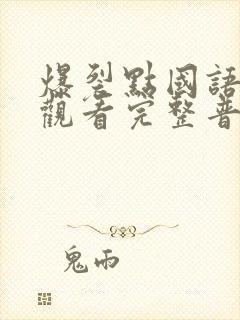 爆裂點國語
觀看完整普
鬼雨